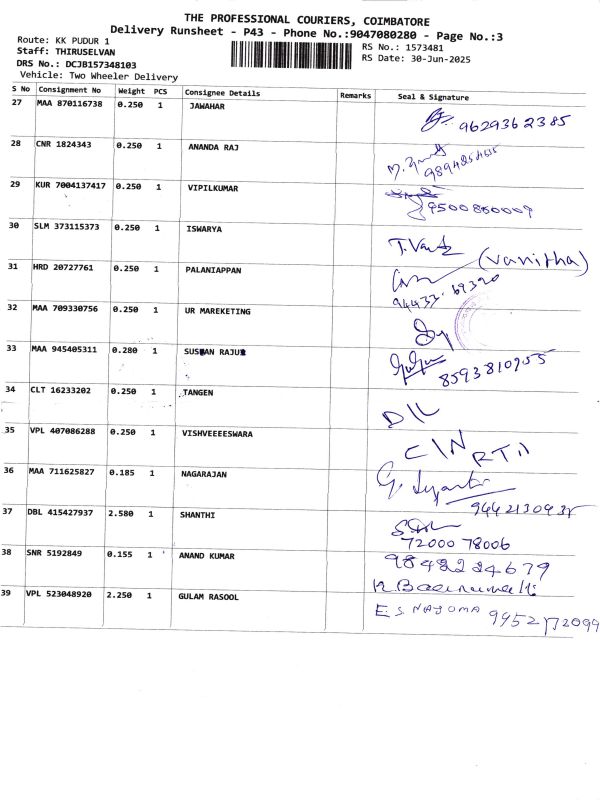 THE PROFESSIONAL COURIERS, COIMBATORE
Delivery Runsheet - P43 - Phone No.:9047080280 - Page No.:3
Route: KK PUDUR 1
RS No.: 1573481
Staff: THIRUSELVAN
RS Date: 30-Jun-2025
DRS No.: DCJB157348103
Vehicle: Two Wheeler Delivery
S No Consignment No Weight PCS Consignee Details Remarks Seal & Signature
27 MAA 870116738 0.250 1 JAWAHAR
9629362385
28 CNR 1824343 0.250 1 ANANDA RAJ
29 KUR 7004137417 0.250 1 VIPILKUMAR
9500850009
30 SLM 373115373 0.250 1 ISWARYA
(Vanitha)
31 HRD 20727761 0.250 1 PALANIAPPAN
94433 69320
32 MAA 709330756 0.250 1 UR MAREKETING
33 MAA 945405311 0.280 1
8593810955
34 CLT 16233202 0.250 1 TANGEN
D/L
35 VPL 407086288 0.250 1 VISHVEEEESWARA
C/N RTN
36 MAA 711625827 0.185 1 NAGARAJAN
37 DBL 415427937 2.580 1 SHANTHI
72000 78006
38 SNR 5192849 0.155 1 ANAND KUMAR
9842224679
39 VPL 523048920 2.250 1 GULAM RASOOL
E.S NAJOMA